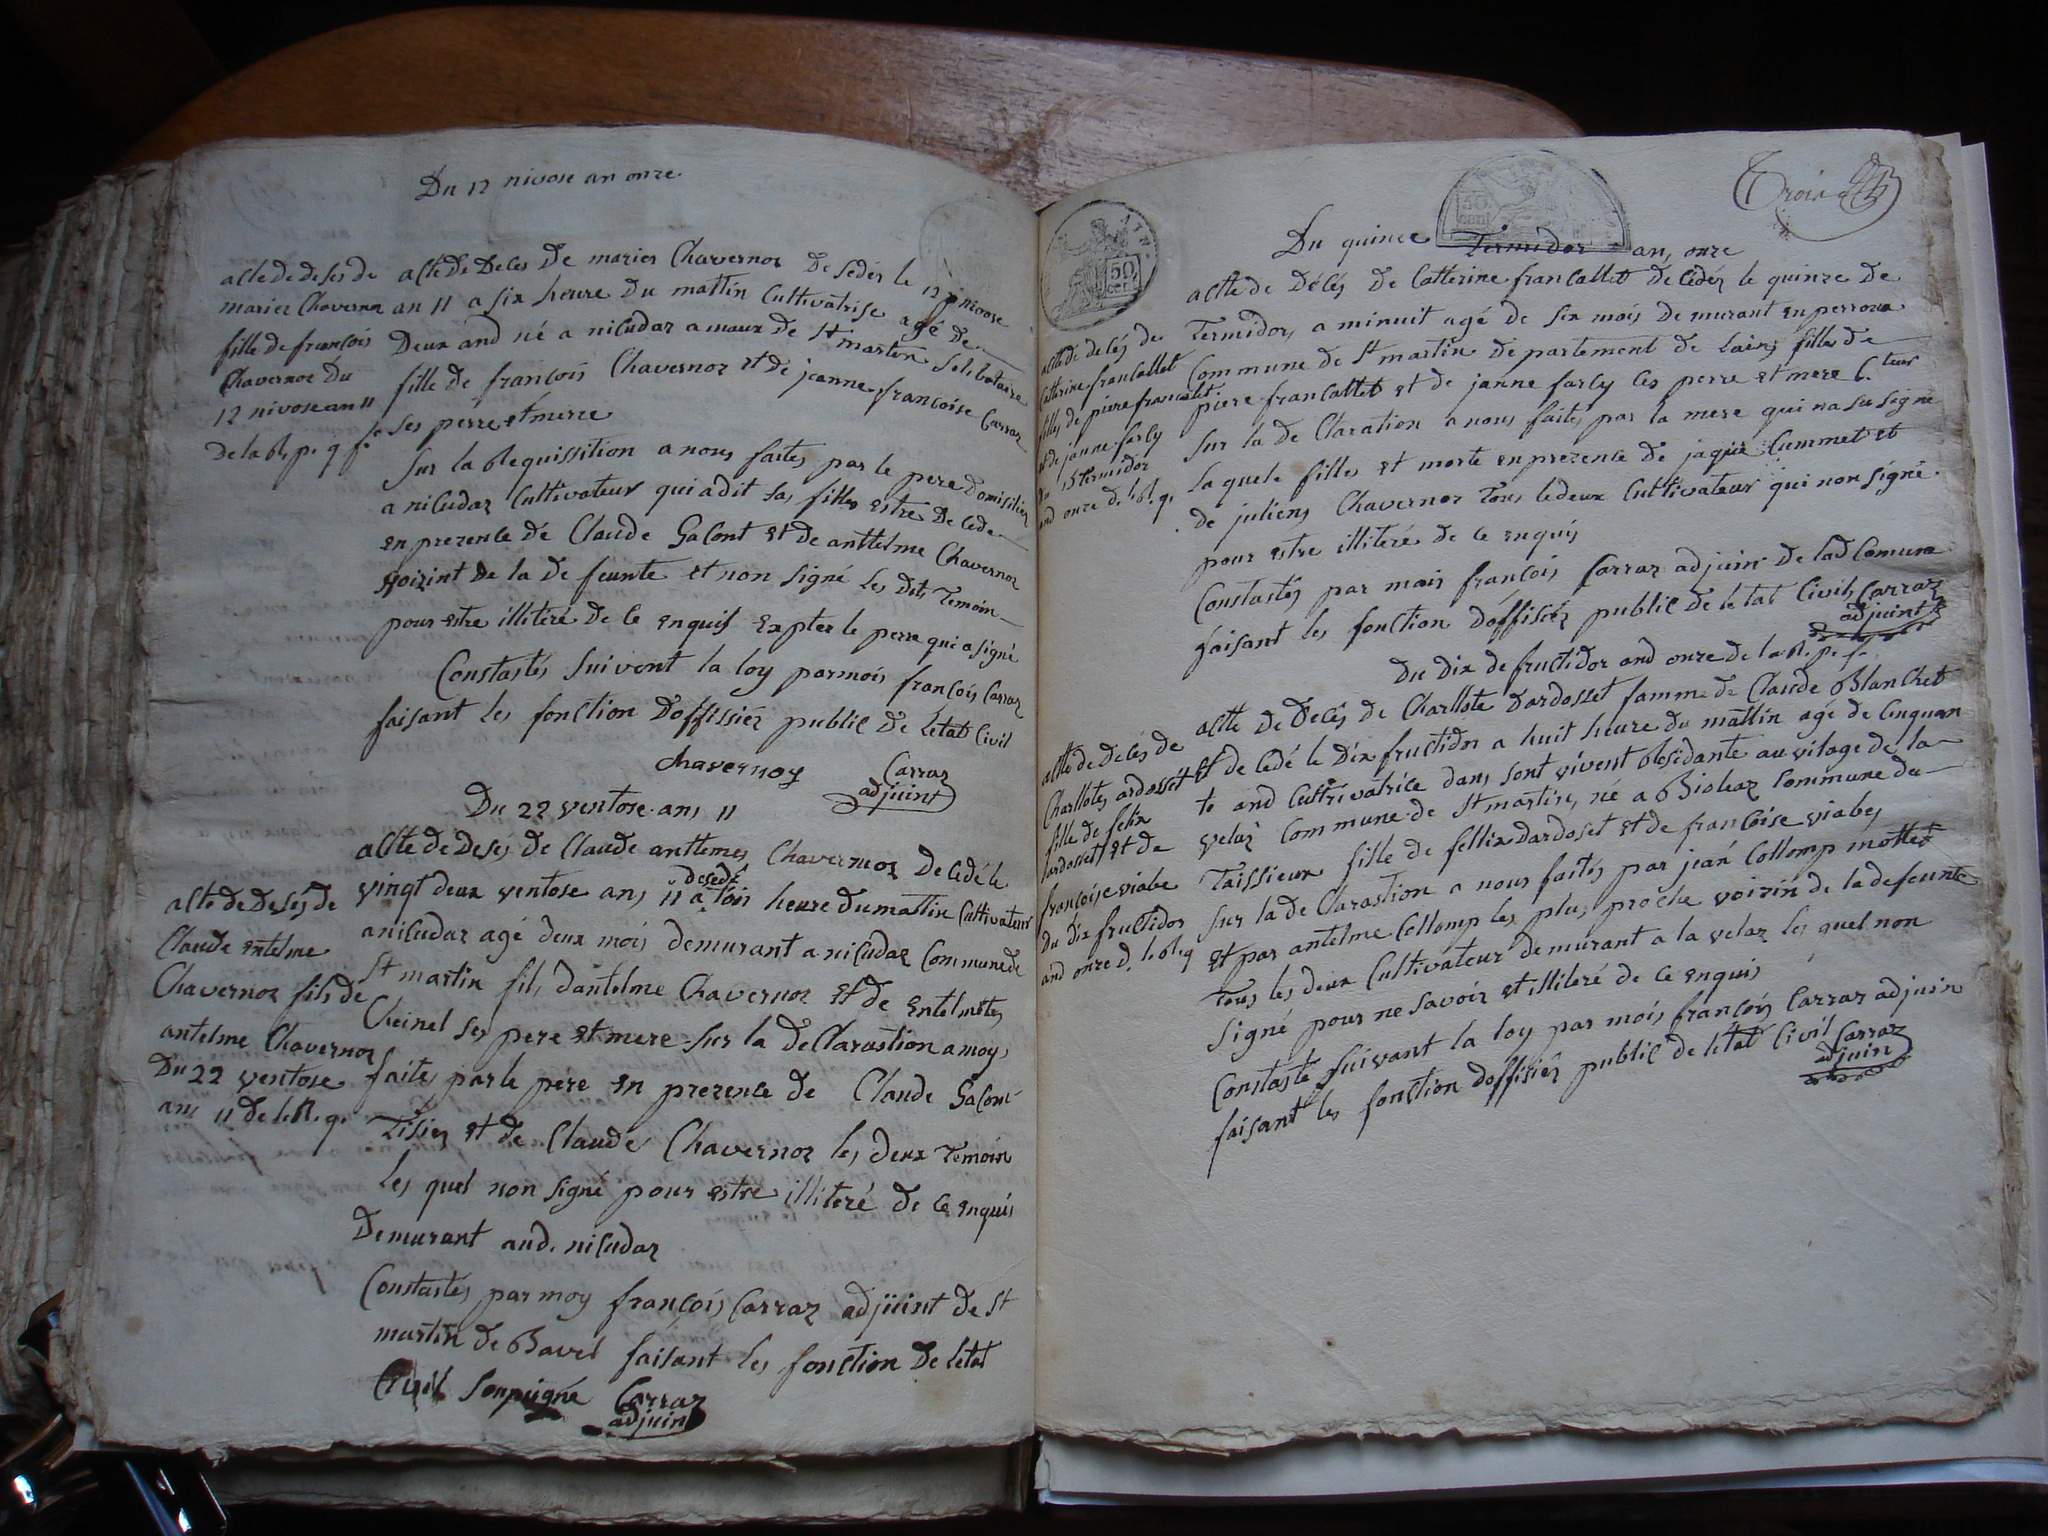 Du 12 nivose an onze
acte de deses de
marier Chavernoz
fille de françois
Chavernoz du
12 nivose an 11
de la R. p. q f.e
acte de Deces de marier Chavernoz De sedér le 12 nivose
an 11 a six heure Du mattin Cultivatrise agé de
Deux and né a niludaz a maux de St martin Selibataire
fille de françois Chavernoz et de jeanne françoise Carraz
ses perre et merre
Sur la Requissition a nous faites par le pere domisilier
a niludaz Cultivateur qui a dit sas filles estre De cede
en prezence dé Claude Galont et de anttelme Chavernoz
voizint de la de feunte et non signé les dits temoin
pour estre illiteré de ce enquis expter le perre qui a signé
Constatés suivent la loy par mois françois Carraz
faisant les fonction Doffissiér public de létat Civil
Chavernoz
Carraz
adjuint
Du 22 ventose ans 11
acte de Desés de
Claude entelme
Chavernoz fils de
antelme Chavernoz
Du 22 ventose
ans 11 de le R. q.
acte de Desés de Claude anttemes Chavernoz De cédé le
desedé
vingt deux ventose ans 11 a tois heure du mattin Cultivateur
a niludaz agé deux mois demurant a niludaz Commune de
St martin fils dantelme Chavernoz et de entelmetes
Cheinel ses pere et mere sur la de Claration a moy
faites par le pére en prezence de Claude Galont
Tisier et de Claude Chavernoz les deux temoin
les quel non signé pour estre illiteré de ce enquis
Demurant aud. niludaz
Constatés par moy françois Carraz adjuint de St
martin de Bavel faisant les fonction de letat
Civil
Carraz
adjuint
Trois
50
cent
50
cent
Du quinze Termidor an onze
acte de decés de
Catterine francallet
filles de piere francallet
et de janne farcy
du 15 termidor
and onze d. l. R. q.
acte de Décés de Catterine francallet de cédér le quinze de
Termidor, a minuit agé de six mois de murant en perroux
Commune de St martin de partement de lains filles de
piere francallet et de janne farcy les perre et mere C.teur
Sur la de Claration a nous faites par la mere qui na su signé
la quele filles et morte en prezence de jaque Cummet et
de juliens Chavernoz tous ledeux Cultivateur qui non signé
pour estre illiteré de ce enquis
Constatés par mois françois Carraz adjuin de lad Comune
faisant les fonction doffisiér public de letat Civils Carraz
adjuint
Du Dix de fructidor and onze de la R. p. f.
acte de decés de
Charllotes ardosset
fille de felix
dardosset et de
françoise viabe
du dix fructidor
and onze d. l. R. q
acte de Decés de Charllote dardosset famme de Claude Blanchet
et de cedé le Dix fructidor a huit heure du mattin agé de Cinquan
te and Cultivatrice dans sont vivent Residante au vilage de la
velaz Commune de St martin, né a Bioleaz Commune du
Taissieux fille de fellix dardoset et de francoise viabes
sur la de Clarastion a nous faités par jean Collomp mottet
et par antelme Collomp les plus proche voizin de la defeunte
tous les deux Cultivateur demurant a la velaz les quel non
signé pour ne savoir et illiteré de ce enquis
Constaste suivant la loy par mois françois Carraz adjuin
faisant les fonction doffisiér public de létat Civil Carraz
adjuin